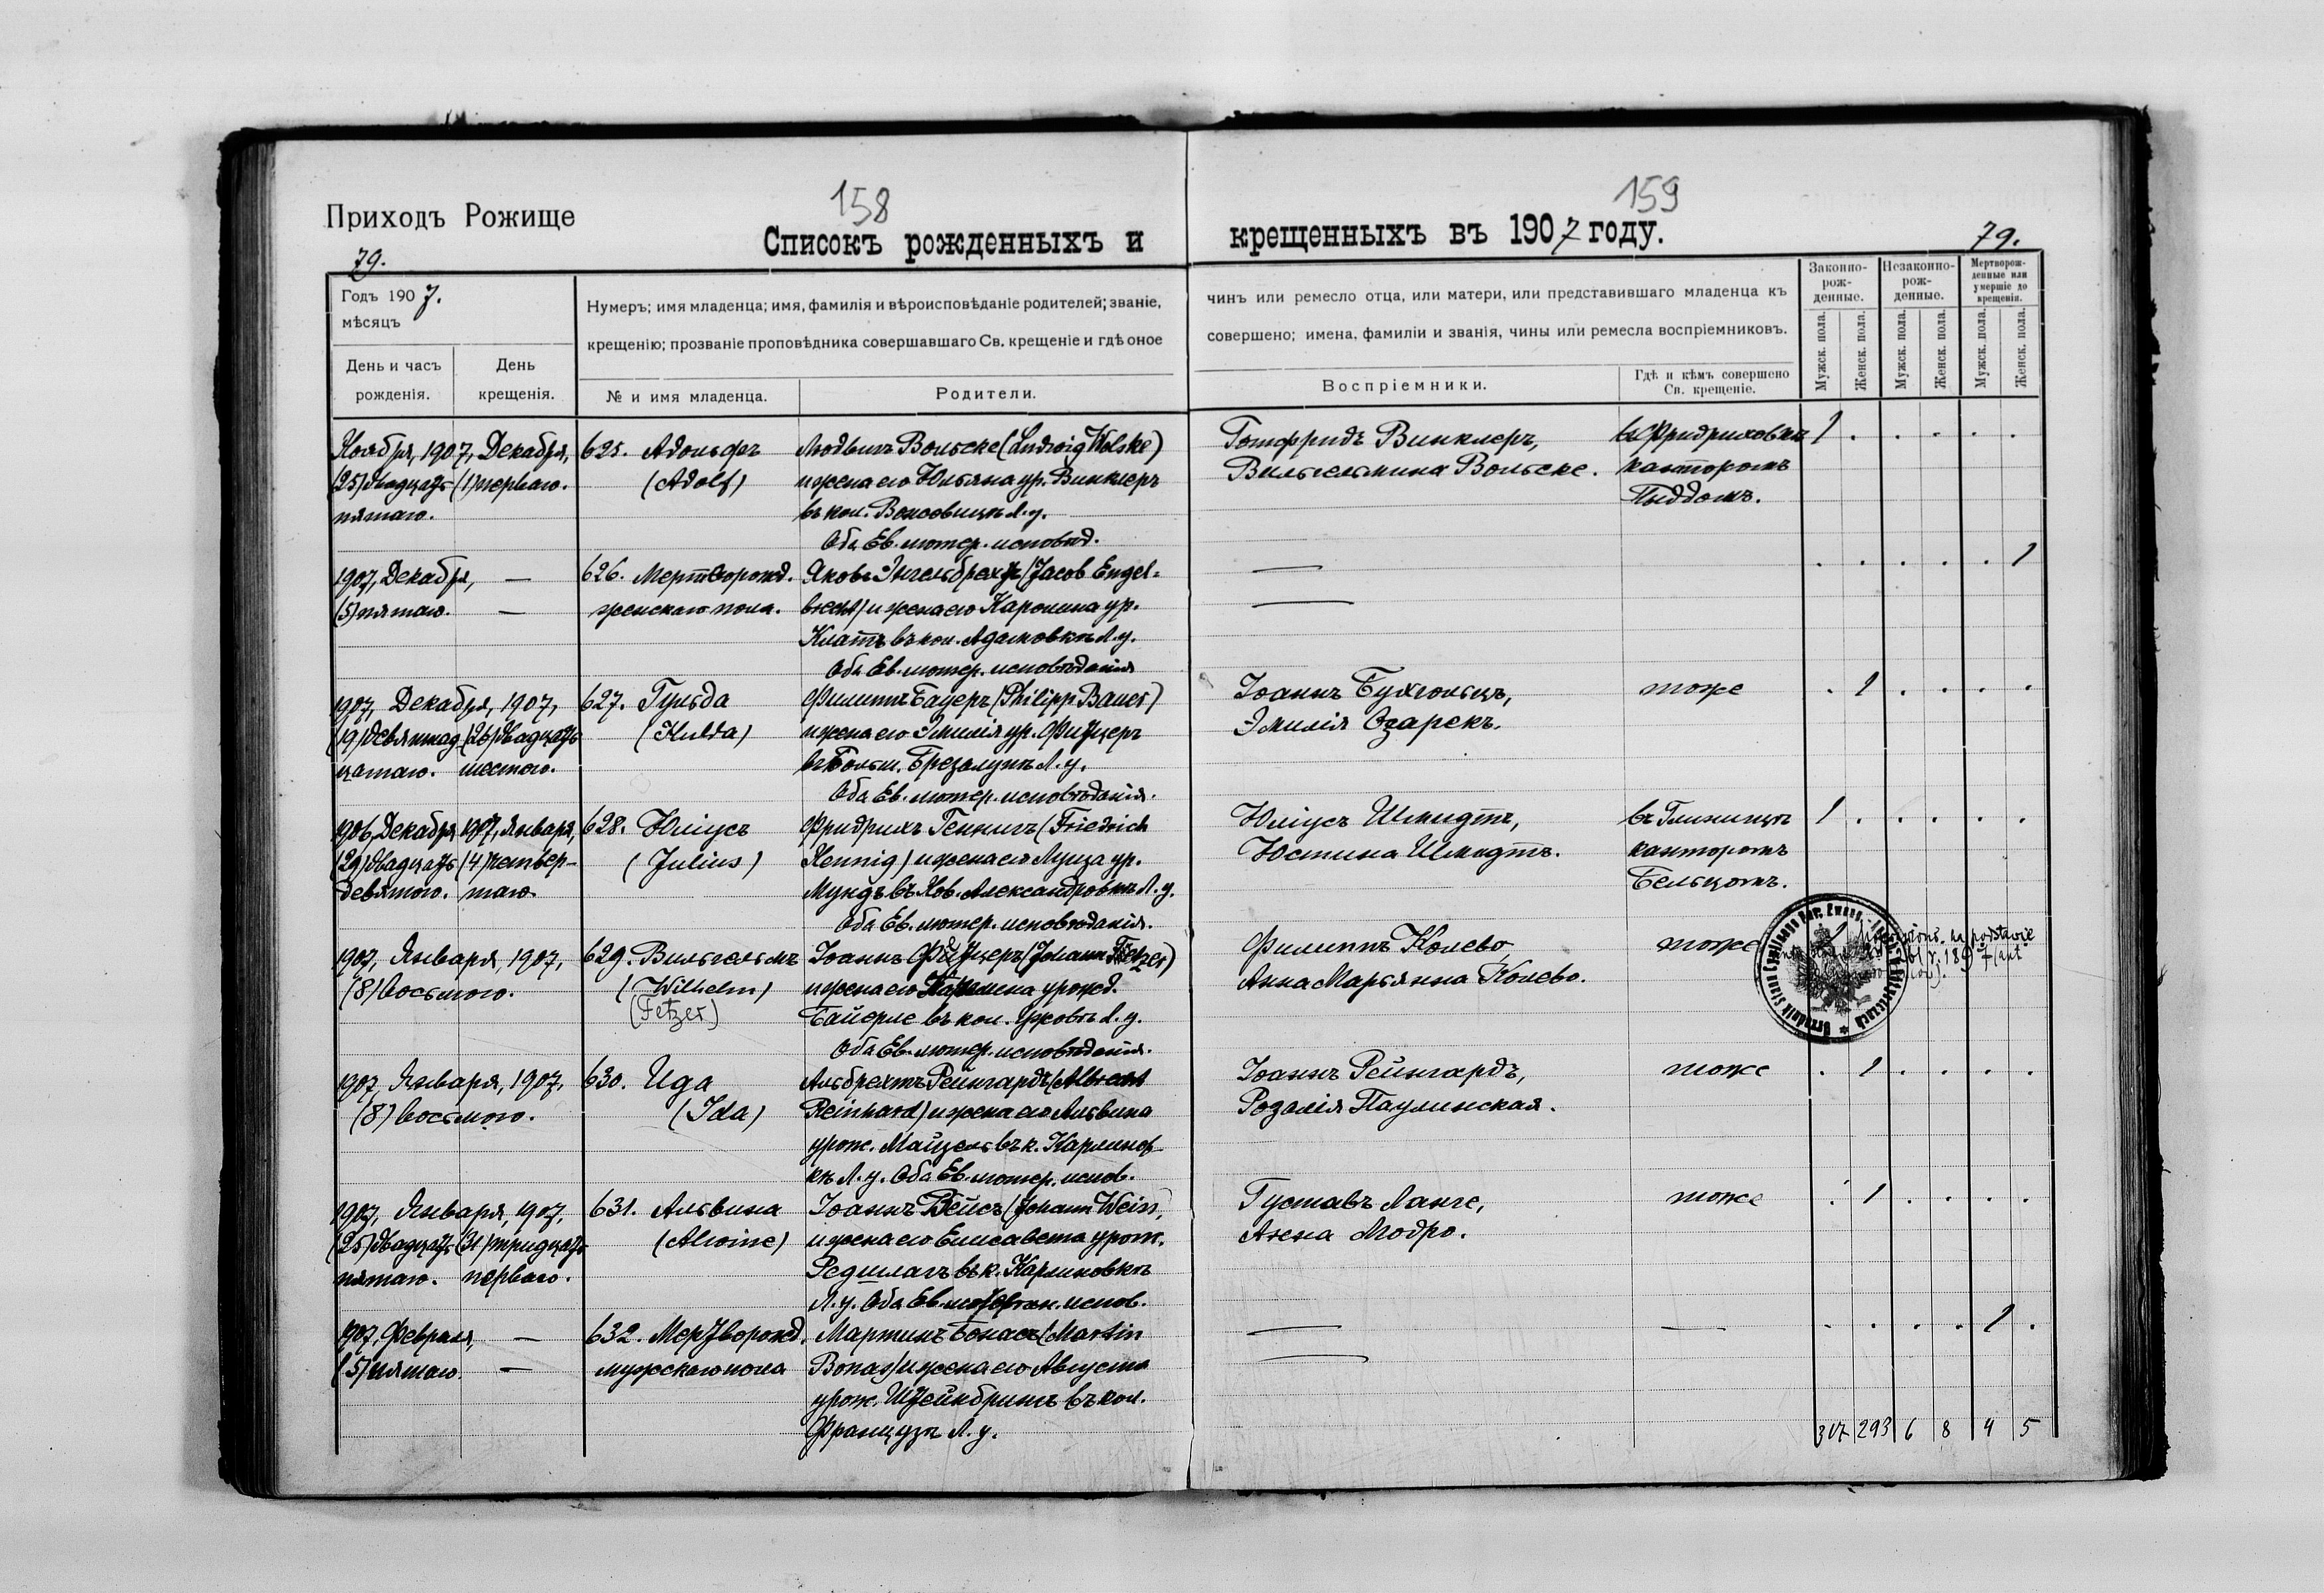 158
159
Приходъ Рожище
Списокъ рожденныхъ и
крещенныхъ въ 1907 году.
79.
79.
Годъ 1907.
мѣсяцъ
День и часъ
рожденія.
День
крещенія.
Нумеръ; имя младенца; имя, фамилія и вѣроисповѣданіе родителей; званіе,
крещенію; прозваніе проповѣдника совершавшаго Св. крещеніе и гдѣ оное
№ и имя младенца.
Родители.
чинъ или ремесло отца, или матери, или представившаго младенца къ
совершено; имена, фамиліи и званія, чины или ремесла воспріемниковъ.
Воспріемники.
Гдѣ и кѣмъ совершено
Св. крещеніе.
Законно-
рож-
денные.
Незаконно-
рож-
денные.
Мертворож-
денные или
умершіе до
крещенія.
Мужск. пола.
Женск. пола.
Мужск. пола.
Женск. пола.
Мужск. пола.
Женск. пола.
Ноября, 1907, Декабря, 625. Адольфъ Людвигъ Вольске (Ludwig Wolske) Готфридъ Винклеръ, 1
(25) двадцать (1) перваго. (Adolf) и жена его Юльяна ур. Винклеръ Вильгельмина Вольске. канторомъ
пятаго. въ кол. Л. у.
Оба Ев. лютер. исповѣд.
1907, Декабря, — 626. Мертворожд. Яковъ Энгельбрехтъ (Jacob Engel- — 1
(5) пятаго. — женскаго пола. brecht) и жена его Каролина ур. —
Клаттъ въ кол. Адамовкѣ Л. у.
Оба Ев. лютер. исповѣданія
1907, Декабря, 1907, 627. Гульда Филиппъ Бауеръ (Philipp Bauer) Іоаннъ Бухгольцъ, тоже 1
(19) девятнад (26) двадцать (Hulda) и жена его Эмилія ур. Фитцеръ Эмилія Озарекъ.
цатаго. шестого. въ Больш. Брезалупѣ Л. у.
Оба Ев. лютер. исповѣданія.
1906, Декабря 1907, Января, 628. Юліусъ Фридрихъ Геннигъ (Friedrich Юліусъ Шмидтъ, въ Глинищѣ 1
(29) двадцать (4) четвер- (Julius) Hennig) и жена его Луиза ур. Юстина Шмидтъ. канторомъ
девятого. таго. Мундъ въ Нов. Александровкѣ Л. у. Бельцомъ.
Оба Ев. лютер. исповѣданія.
1907, Января, 1907, 629. Вильгельмъ Іоаннъ (Johann Fetzer) Филиппъ Колево, тоже
(8) восьмого. (Wilhelm) и жена его урожд. Анна Марьянна Колево.
(Fetzer) Байерле въ кол. Л. у.
Оба Ев. лютер. исповѣданія.
na podstawie
1907, Января, 1907, 630. Ида Альбрехтъ Рейнгардъ (Albrecht Іоаннъ Рейнгардъ, тоже 1
(8) восьмого. (Ida) Reinhard) и жена его Альвина Розалія Паулинская.
урож. Майцель въ к. Карлинов-
кѣ Л. у. Оба Ев. лютер. испов.
1907, Января, 1907, 631. Альвина Іоаннъ Вейсъ (Johann Weiss) Густавъ Ланге, тоже 1
(25) двадцать (31) тридцать (Alwine) и жена его Елисавета урож. Анна Модро.
пятаго. перваго. Редшлагъ въ к. Карлиновкѣ
Л. у. Оба Ев. лютеран. испов.
1907, Февраля, — 632. Мертворожд. Мартинъ Бонасъ (Martin — — 1
(5) пятаго — мужескаго пола Bonas) и жена его Августа —
урож. Штейнбринкъ въ кол.
Французѣ Л. у.
307 293 6 8 4 5